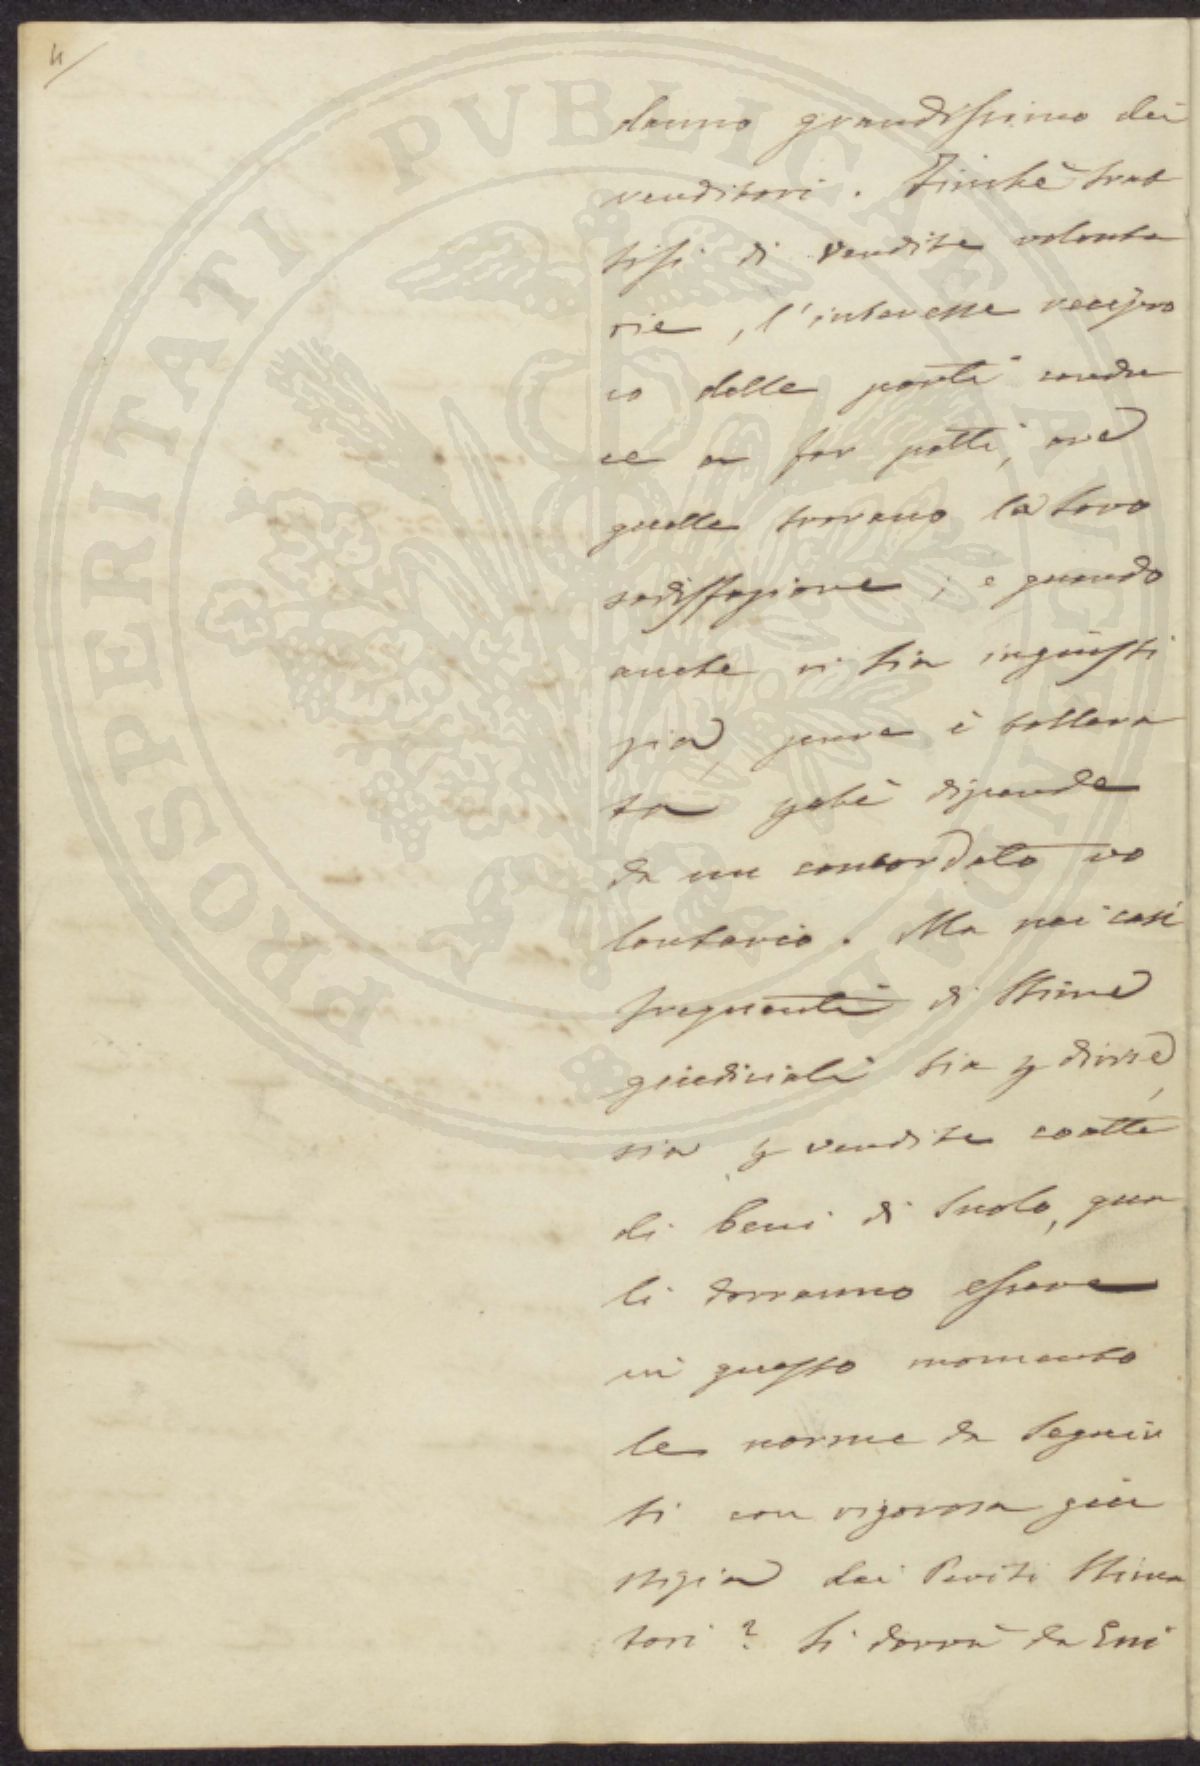 4/
danno grandissimo dei
venditori. Finchè trat
tisi di vendite volonta
rie, l'interesse recipro
co delle parti condu
ce a far patti, ove
quelle trovano la loro
sodisffazione; e quando
anche vi sia ingiusti
zia, pure è tollera
ta pchè dipende
da un concordato vo
lontario. Ma nei casi
frequenti di Stime
giudiziali sia p divise,
sia p vendite coatte
di beni di suolo, qua
li dovranno essere
in questo momento
le norme da seguir
si con rigorosa giu
stizia dai Periti Stima
tori? Si dovrà da Essi
PROSPERITATI PVBLICAE AVGENDAE